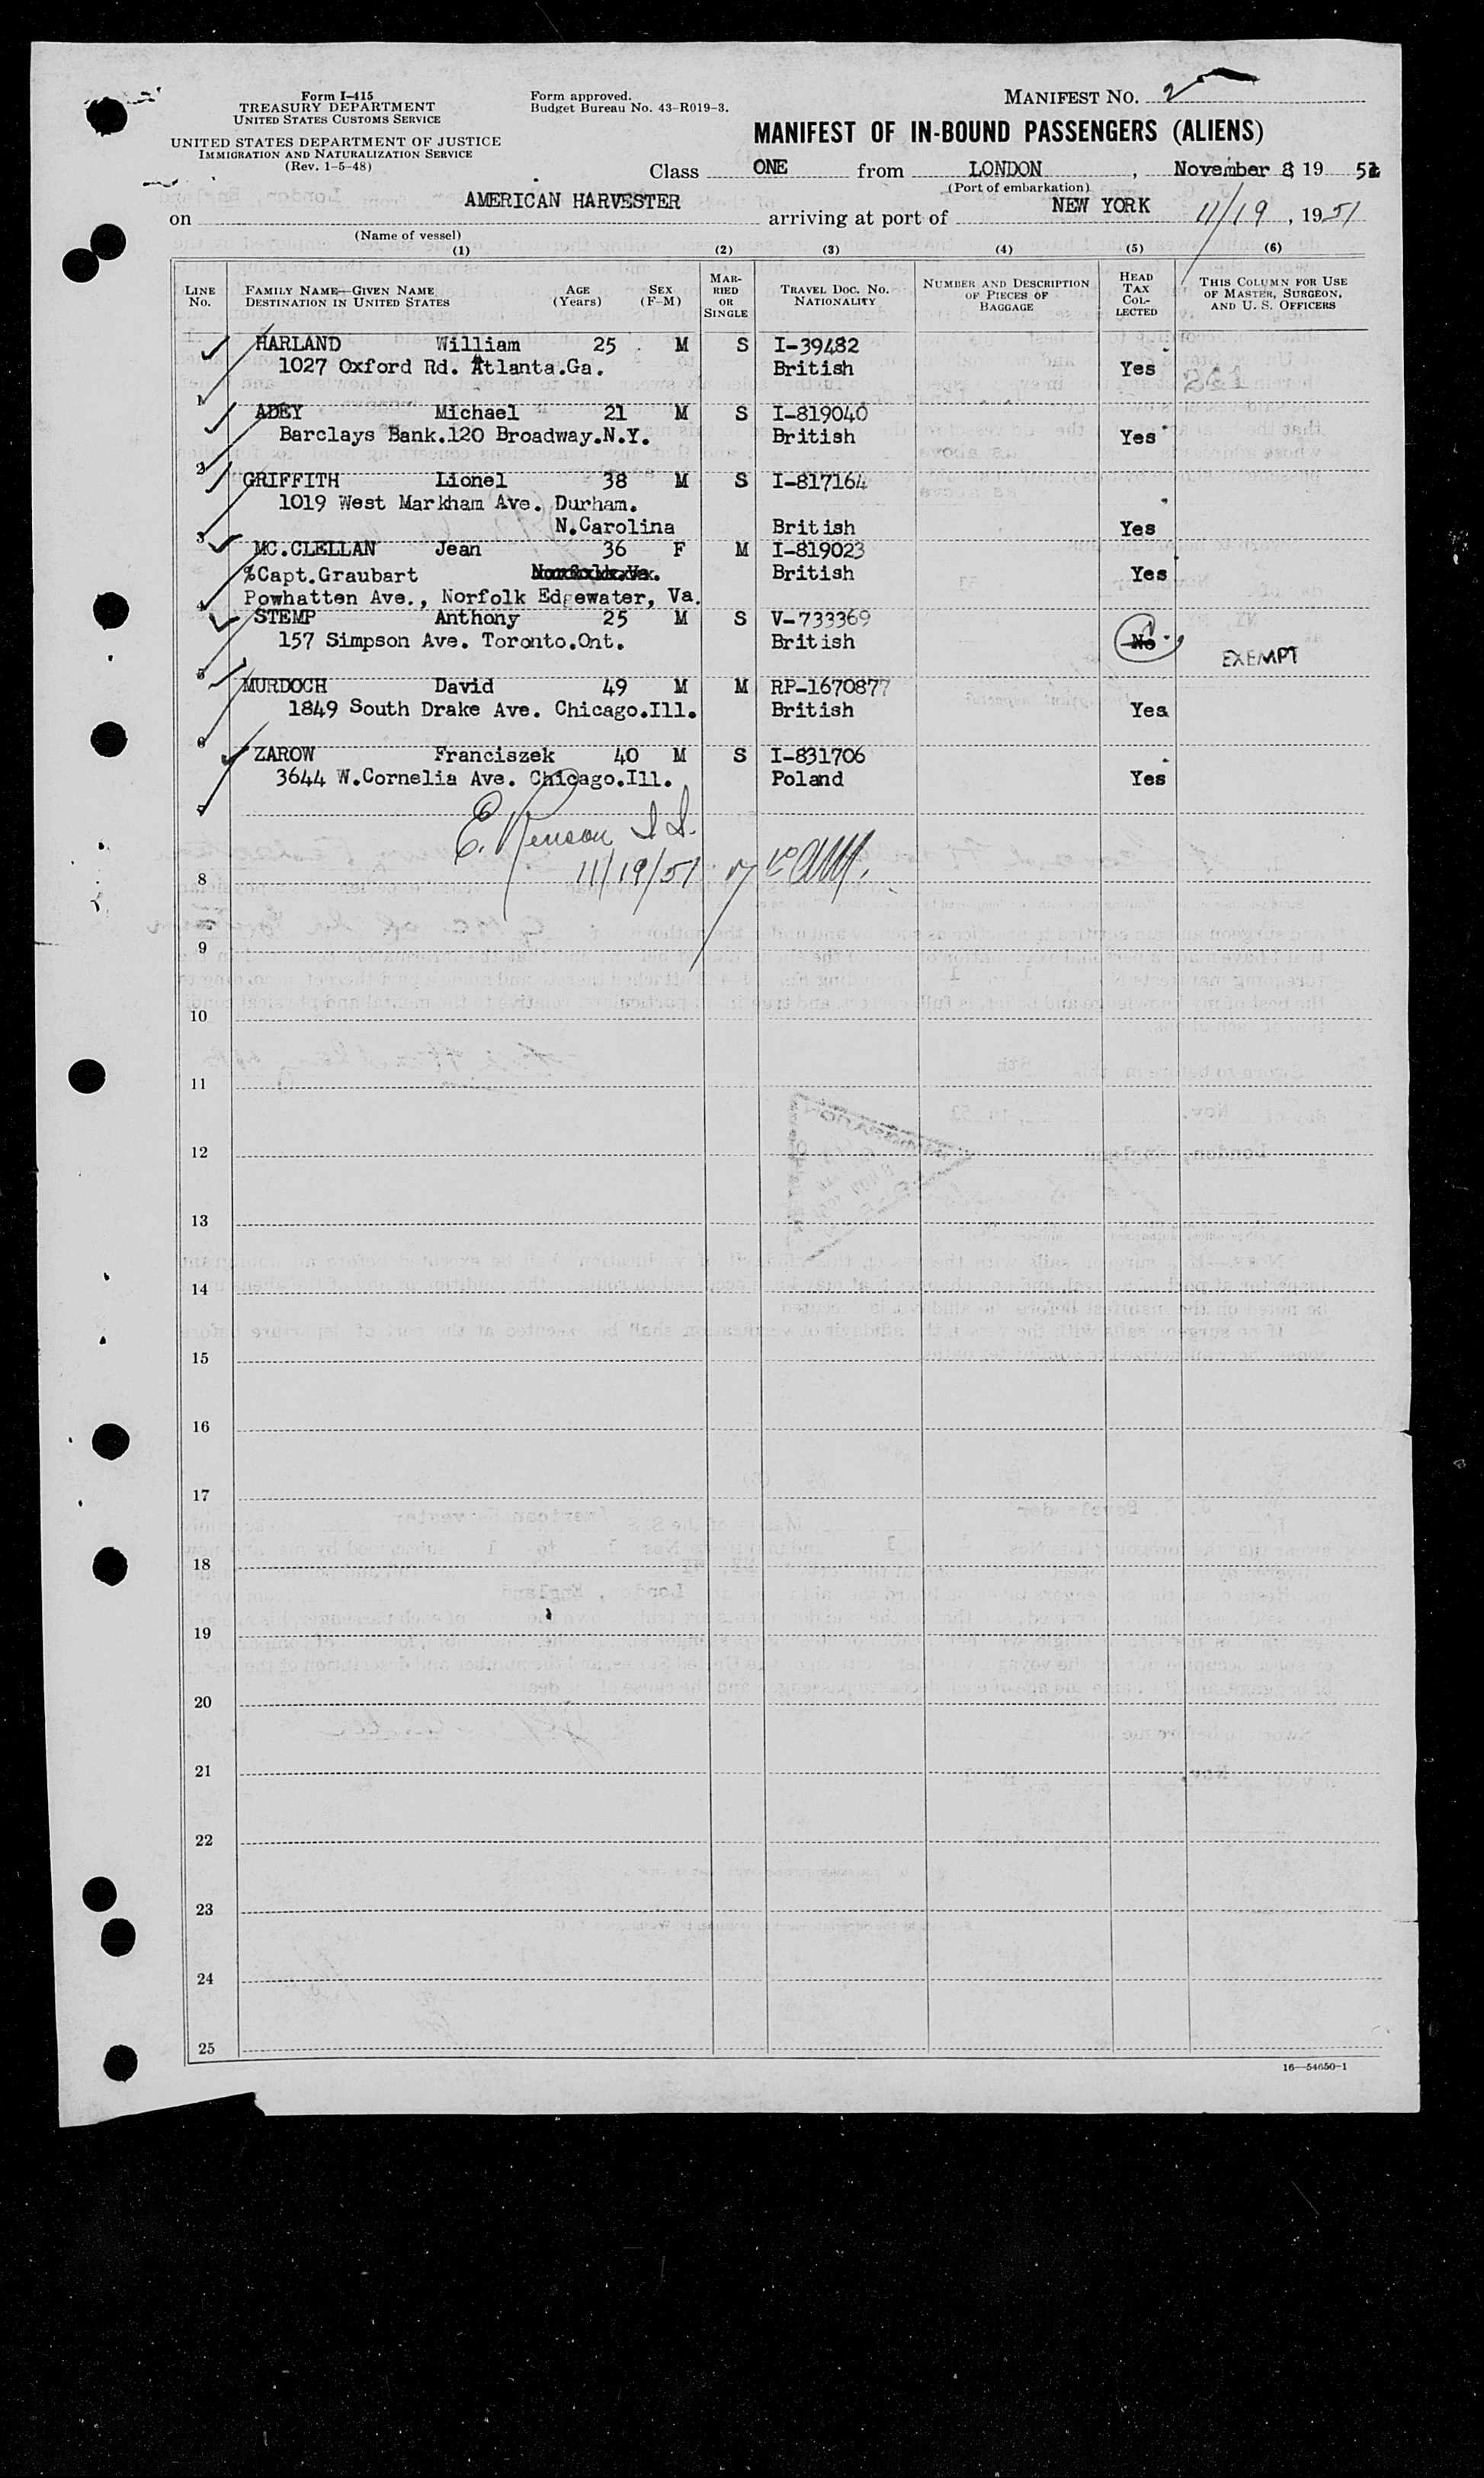 Form I-415
TREASURY DEPARTMENT
UNITED STATES CUSTOMS SERVICE
UNITED STATES DEPARTMENT OF JUSTICE
IMMIGRATION AND NATURALIZATION SERVICE
(Rev. 1-5-48)
Form approved.
Budget Bureau No. 43-R019-3.
MANIFEST NO. 2
MANIFEST OF IN-BOUND PASSENGERS (ALIENS)
Class ONE from LONDON, November 8 19 51
(Port of embarkation)
on AMERICAN HARVESTER arriving at port of NEW YORK 11/19, 1951
(Name of vessel)
(1) (2) (3) (4) (5) (6)
LINE No. FAMILY NAME—GIVEN NAME DESTINATION IN UNITED STATES AGE (Years) SEX (F-M) MARRIED OR SINGLE TRAVEL DOC. NO. NATIONALITY NUMBER AND DESCRIPTION OF PIECES OF BAGGAGE HEAD TAX COLLECTED THIS COLUMN FOR USE OF MASTER, SURGEON, AND U. S. OFFICERS
HARLAND William 25 M S I-39482
1027 Oxford Rd. Atlanta.Ga. British Yes
1
ADEY Michael 21 M S I-819040
Barclays Bank.120 Broadway.N.Y. British Yes
2
GRIFFITH Lionel 38 M S I-817164
1019 West Markham Ave. Durham.
N.Carolina British Yes
3
MC.CLELLAN Jean 36 F M I-819023
%Capt.Graubart British Yes
Powhatten Ave., Norfolk Edgewater, Va.
4
STEMP Anthony 25 M S V-733369
157 Simpson Ave. Toronto.Ont. British No EXEMPT
5
MURDOCH David 49 M M RP-1670877
1849 South Drake Ave. Chicago.Ill. British Yes
6
ZAROW Franciszek 40 M S I-831706
3644 W.Cornelia Ave. Chicago.Ill. Poland Yes
7
E. Kenson I.I.
11/19/51
8
9
10
11
12
13
14
15
16
17
18
19
20
21
22
23
24
25
16—54650-1